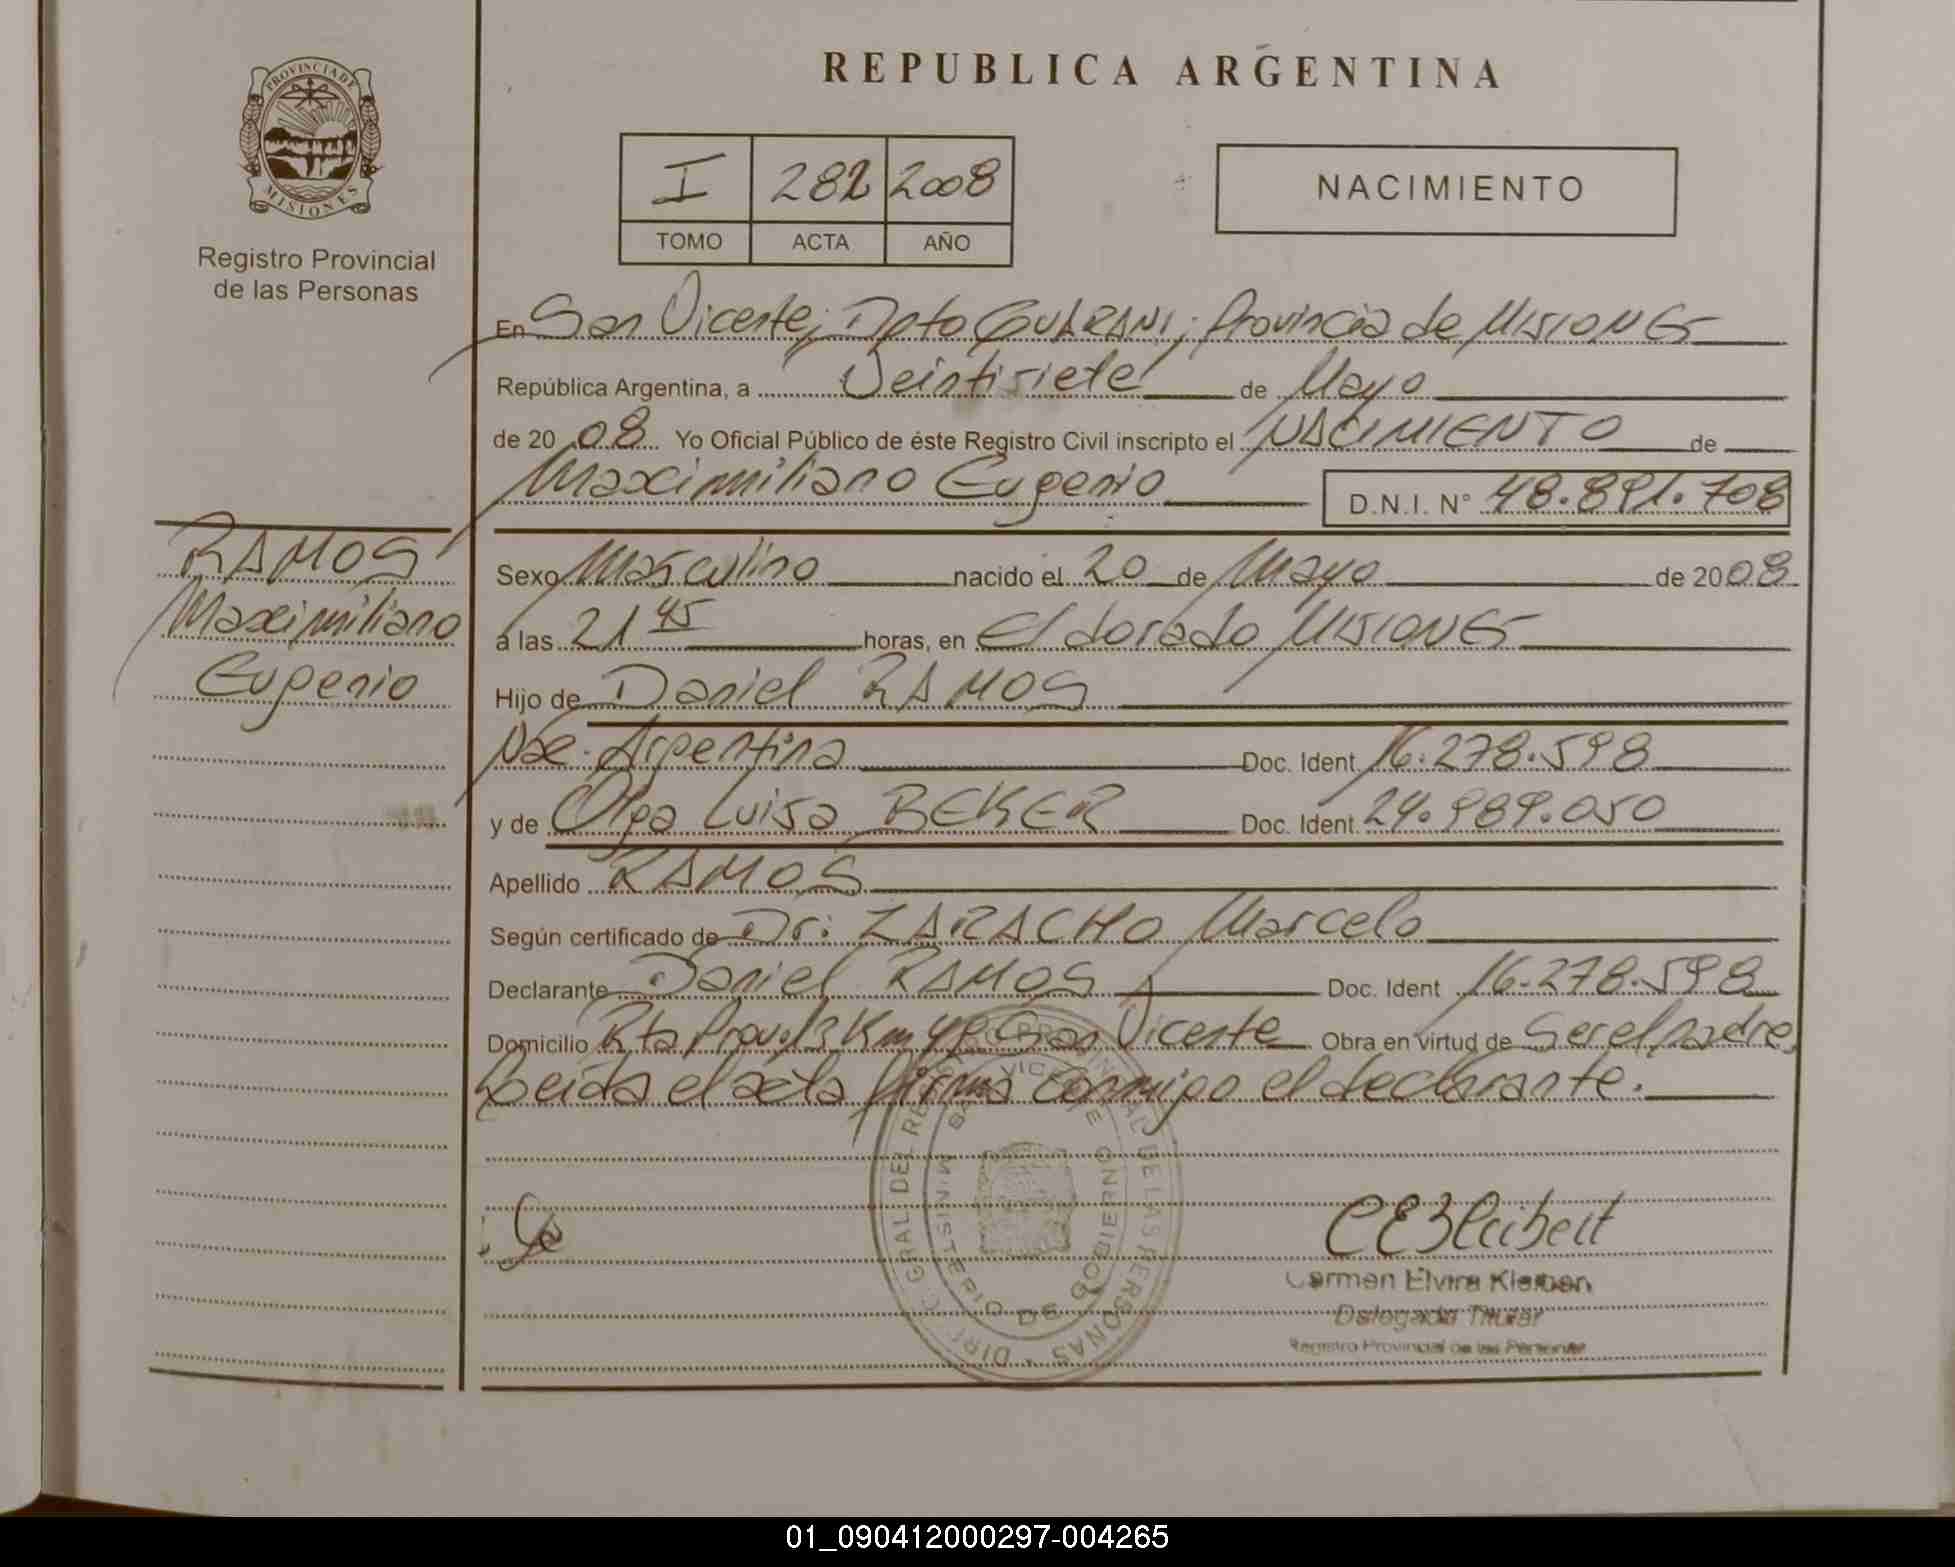 PROVINCIA DE
MISIONES
Registro Provincial
de las Personas
REPUBLICA ARGENTINA
I 282 2008
TOMO ACTA AÑO
NACIMIENTO
En San Vicente, Dpto GUARANI, Provincia de MISIONES
República Argentina, a Veintisiete de Mayo
de 2008 Yo Oficial Público de éste Registro Civil inscripto el NACIMIENTO de
Maximiliano Eugenio D.N.I. N° 48.891.708
RAMOS
Maximiliano
Eugenio
Sexo Masculino nacido el 20 de Mayo de 2008
a las 21 45 horas, en Eldorado MISIONES
Hijo de Daniel RAMOS
Nac. Argentina Doc. Ident 16.278.598
y de Olga Luisa BEKER Doc. Ident. 24.989.050
Apellido RAMOS
Según certificado de Dr: ZARACHO Marcelo
Declarante Daniel RAMOS Doc. Ident 16.278.598
Domicilio Rta Prov. 13 Km 48 San Vicente Obra en virtud de Ser el padre,
Leída el acta firma conmigo el declarante.
MINISTERIO DE GOBIERNO
Carmen Elvira
Delegada Titular
Registro Provincial de las Personas
01_090412000297-004265